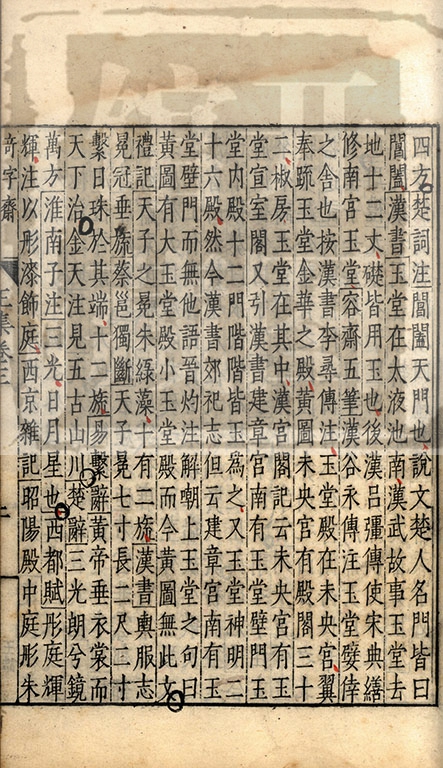 四方楚詞注閶闔天門也說文楚人名門皆曰
閶闔漢書玉堂在太液池南漢武故事玉堂去
地十二丈礎皆用玉也後漢呂彊傳使宋典繕
修南宮玉堂容齋五筆漢谷永傳注玉堂嬖倖
之舍也按漢書李尋傳注玉堂殿在未央宮翼
奉疏玉堂金華之殿黃圖未央宮有殿閣三十
二椒房玉堂在其中漢宮閣記云未央宮有玉
堂宣室閣又引漢書建章宮南有玉堂璧門玉
堂內殿十二門階階皆玉為之又玉堂神明二
十六殿然今漢書郊祀志但云建章宮南有玉
堂壁門而無他語晉灼注解嘲上玉堂之句曰
黃圖有大玉堂殿小玉堂殿而今黃圖無此文
禮記天子之冕朱綠藻十有二旒漢書輿服志
冕冠垂旒蔡邕獨斷天子冕七寸長二尺三寸
繫日珠於其端十二旒易繫辭黃帝垂衣裳而
天下治金天注見五古山川楚辭三光朗兮鏡
萬方淮南子注三光日月星也西都賦彤庭輝
輝注以彤漆飾庭西京雜記昭陽殿中庭彤朱
奇字齋